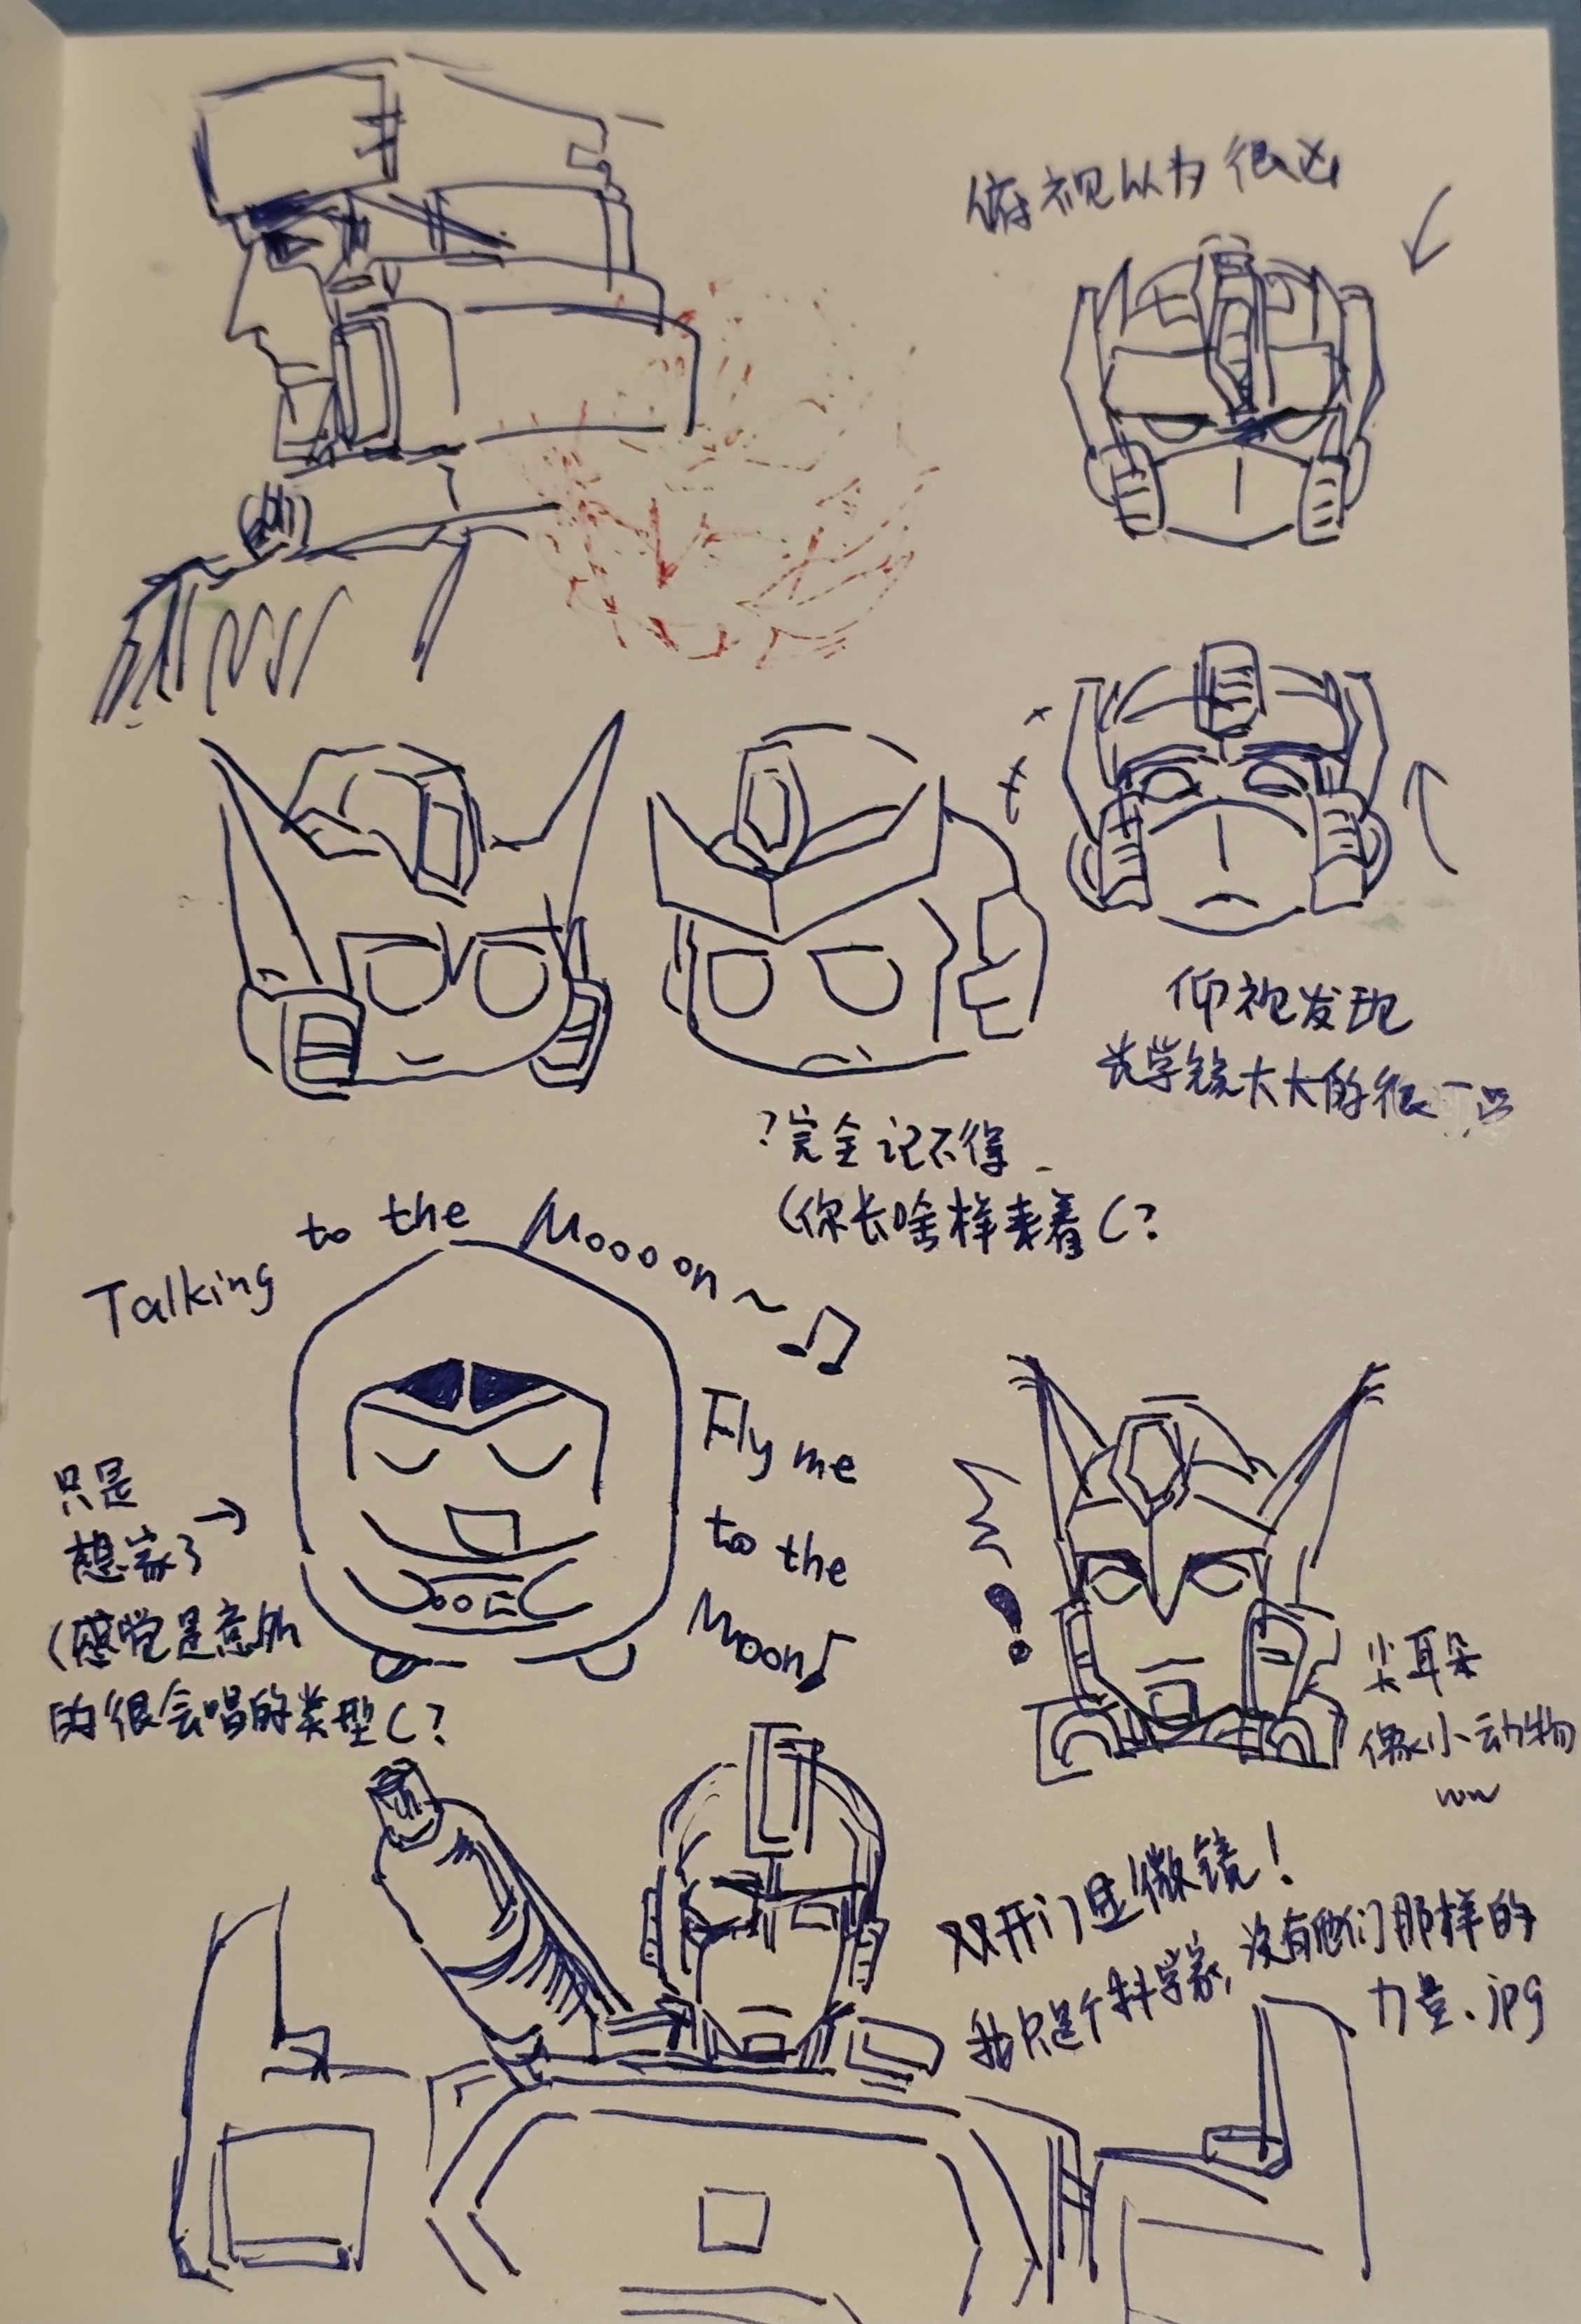 俯视以为很凶
仰视发现
光学镜大大的很
?完全记不得
(你长啥样来着(?
Talking to the Moooon~
Fly me
to the
Moon
只是
想家了
(感觉是意外
的很会唱的类型(?
!
尖耳朵
像小动物
ww
双开门显微镜!
我只是个科学家,没有他们那样的
力量.jpg